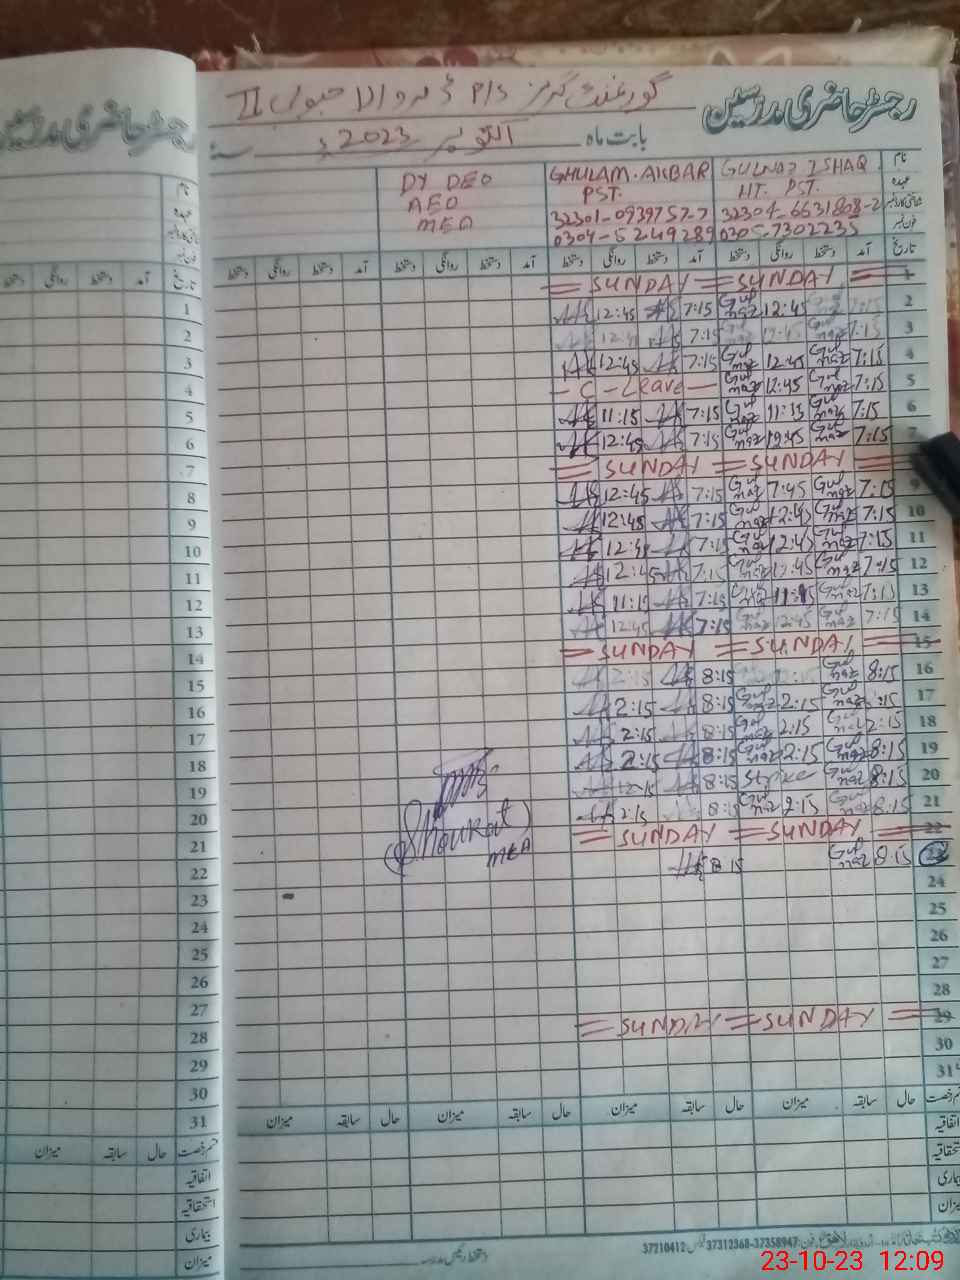 رجسٹر حاضری مدرسین
گورنمنٹ گرلز P/S
II
بابت ماہ اکتوبر 2023ء سنہ
نام GULNAZ ISHAQ GHULAM. AKBAR DY DEO
عہدہ HT. PST. PST. AEO
شناختی کارڈ نمبر 32304-6631808-2 32301-0939757-7 MEA
فون نمبر 0305-7302235 0304-5249289
تاریخ آمد دستخط روانگی دستخط آمد دستخط روانگی دستخط آمد دستخط روانگی دستخط آمد دستخط روانگی دستخط
1 SUNDAY SUNDAY
2 7:15 12:45 Gul naz 7:15 12:45
3 7:15 7:15
4 7:15 Gul naz 12:45 Gul naz 7:15 12:45
5 7:15 Gul naz 12:45 Gul naz C-Leave
6 7:15 Gul naz Gul naz 7:15 11:15
7 7:15 Gul naz Gul naz 7:15 12:45
SUNDAY SUNDAY
9 7:15 Gul naz 7:45 Gul naz 7:15 12:45
10 7:15 Gul naz 12:45 Gul naz 7:15 12:45
11 7:15 Gul naz 12:45 Gul naz 7:15 12:45
12 7:15 Gul naz 12:45 Gul naz 7:15 12:45
13 7:15 Gul naz Gul naz 7:15 11:15
14 7:15 Gul naz 12:45 Gul naz 7:15 12:45
15 SUNDAY SUNDAY
16 8:15 Gul naz 8:15 2:15
17 :15 Gul naz 2:15 Gul naz 8:15 2:15
18 2:15 Gul naz 2:15 Gul naz 8:15 2:15
19 8:15 Gul naz 2:15 Gul naz 8:15 2:15
20 8:15 Gul naz 8:15 12:15
21 8:15 Gul naz 2:15 Gul naz 8:15 2:15
22 SUNDAY SUNDAY
23 8:15 Gul naz 8:15
Shawkat
MEA
24
25
26
27
28
29 SUNDAY SUNDAY
30
31
قسم رخصت حال سابقہ میزان حال سابقہ میزان حال سابقہ میزان حال سابقہ میزان
اتفاقیہ
استحقاقیہ
بیماری
میزان
دستخط رئیس مدرسہ
37210412 37312368-37358947
رجسٹر حاضری مدرسین
نام
عہدہ
شناختی کارڈ نمبر
فون نمبر
تاریخ آمد دستخط روانگی دستخط
1
2
3
4
5
6
7
8
9
10
11
12
13
14
15
16
17
18
19
20
21
22
23
24
25
26
27
28
29
30
31
قسم رخصت حال سابقہ میزان
اتفاقیہ
استحقاقیہ
بیماری
میزان
23-10-23 12:09